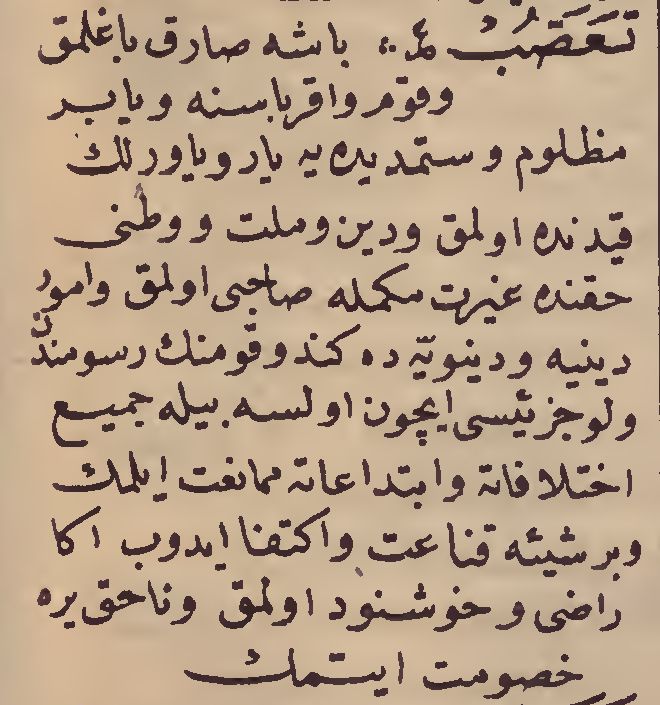 تَعَصُّبْ ع باشه صارق باغلمق
وقوم واقرباسنه ويا بر
مظلوم وستمديده يه يار وياورلك
قيدنده اولمق ودين وملت ووطنى
حقنده غيرت مكمله صاحبى اولمق وامور
دينيه ودنيويّه ده كندو قومنك رسومندن
ولو جزئيسى ايچون اولسه بيله جميع
اختلافاته وابتداعاته ممانعت ايلمك
وبر شيئه قناعت واكتفا ايدوب اكا
راضى وخوشنود اولمق وناحق يره
خصومت ايتمك